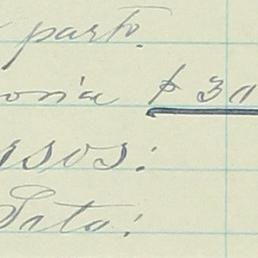 parto.
onia $ 30
asos:
Sato: